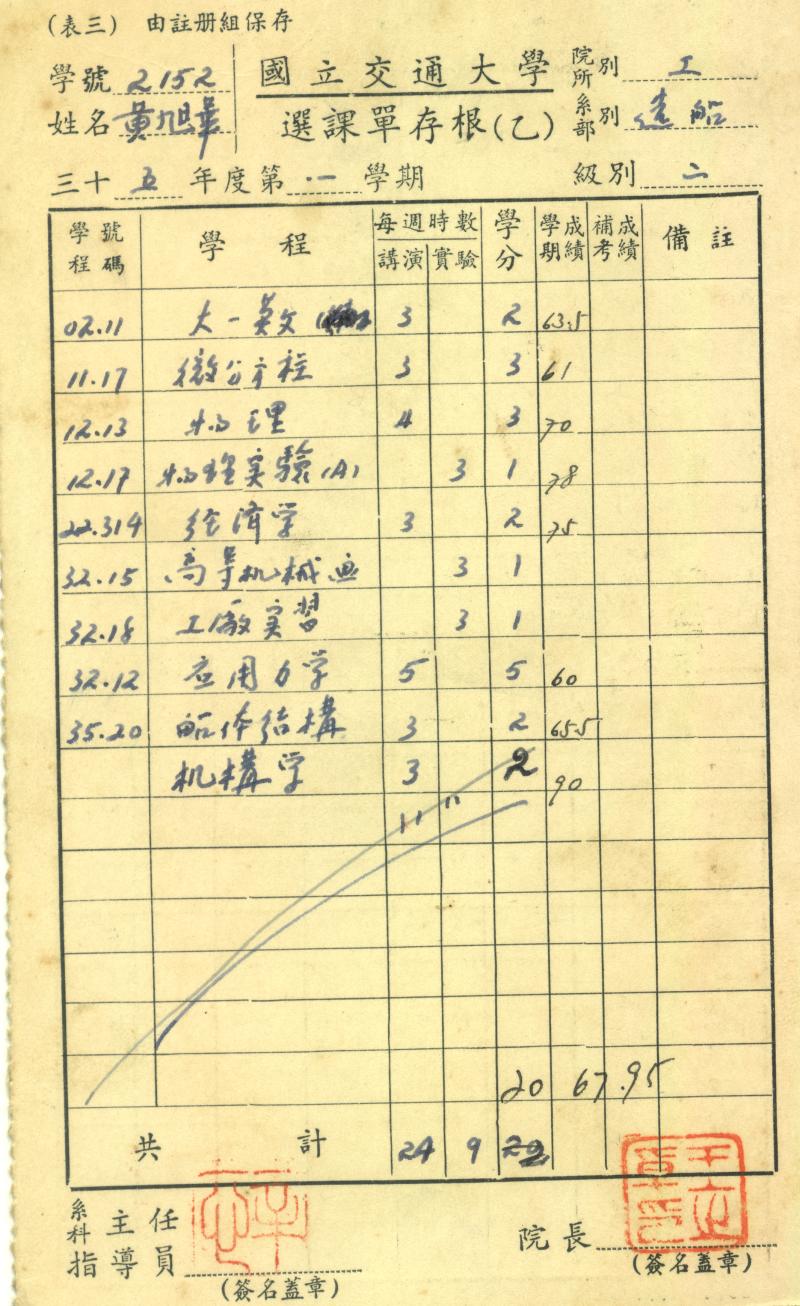 (表三) 由註册組保存
學號 2152 國立交通大學 院所別 工
姓名 黄旭華 選課單存根(乙) 系部別 造船
三十五年度第一學期 級別 二
學程號碼 學程 每週時數 講演 實驗 學分 學期成績 補考成績 備註
02.11 大一英文 3 2 63.5
11.17 微分方程 3 3 61
12.13 物理 4 3 70
12.17 物理实驗(A) 3 1 78
22.314 经濟学 3 2 75
32.15 高等机械画 3 1
32.18 工廠实習 3 1
32.12 应用力学 5 5 60
35.20 船体结構 3 2 65.5
机構学 3 2 90
20 67.95
共計 24 9
系科主任
指導員 (簽名蓋章)
院長 (簽名蓋章)